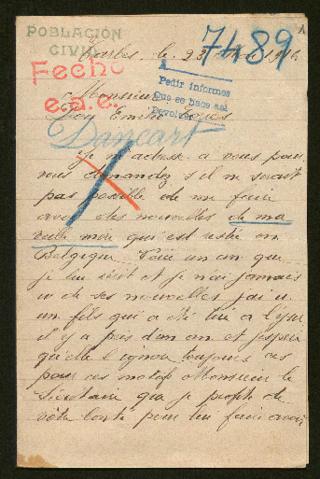 POBLACIÓN
CIVIL
7489
Tarbes, le 23
Fecho
Pedir informes
que se hace así
e.a.e.
Monsieur
Don Emilio
Dancart
Je m'adresse a vous pour
vous demandez s'il ne serait
pas posible de me faire
avoir des nouvelles de ma
mère qui est resté en
Belgique. Voici un an que
je lui écrit et je n'ai jamais
u de ses nouvelles j'ai u
un fils qui a été tué a l'Yser
il y a près d'un an et j'espère
qu'elle l'ignore toujours ces
pour ces motifs Monsieur le
Sécrétaire que je profite de
vôtre bonté pour lui faire avoir